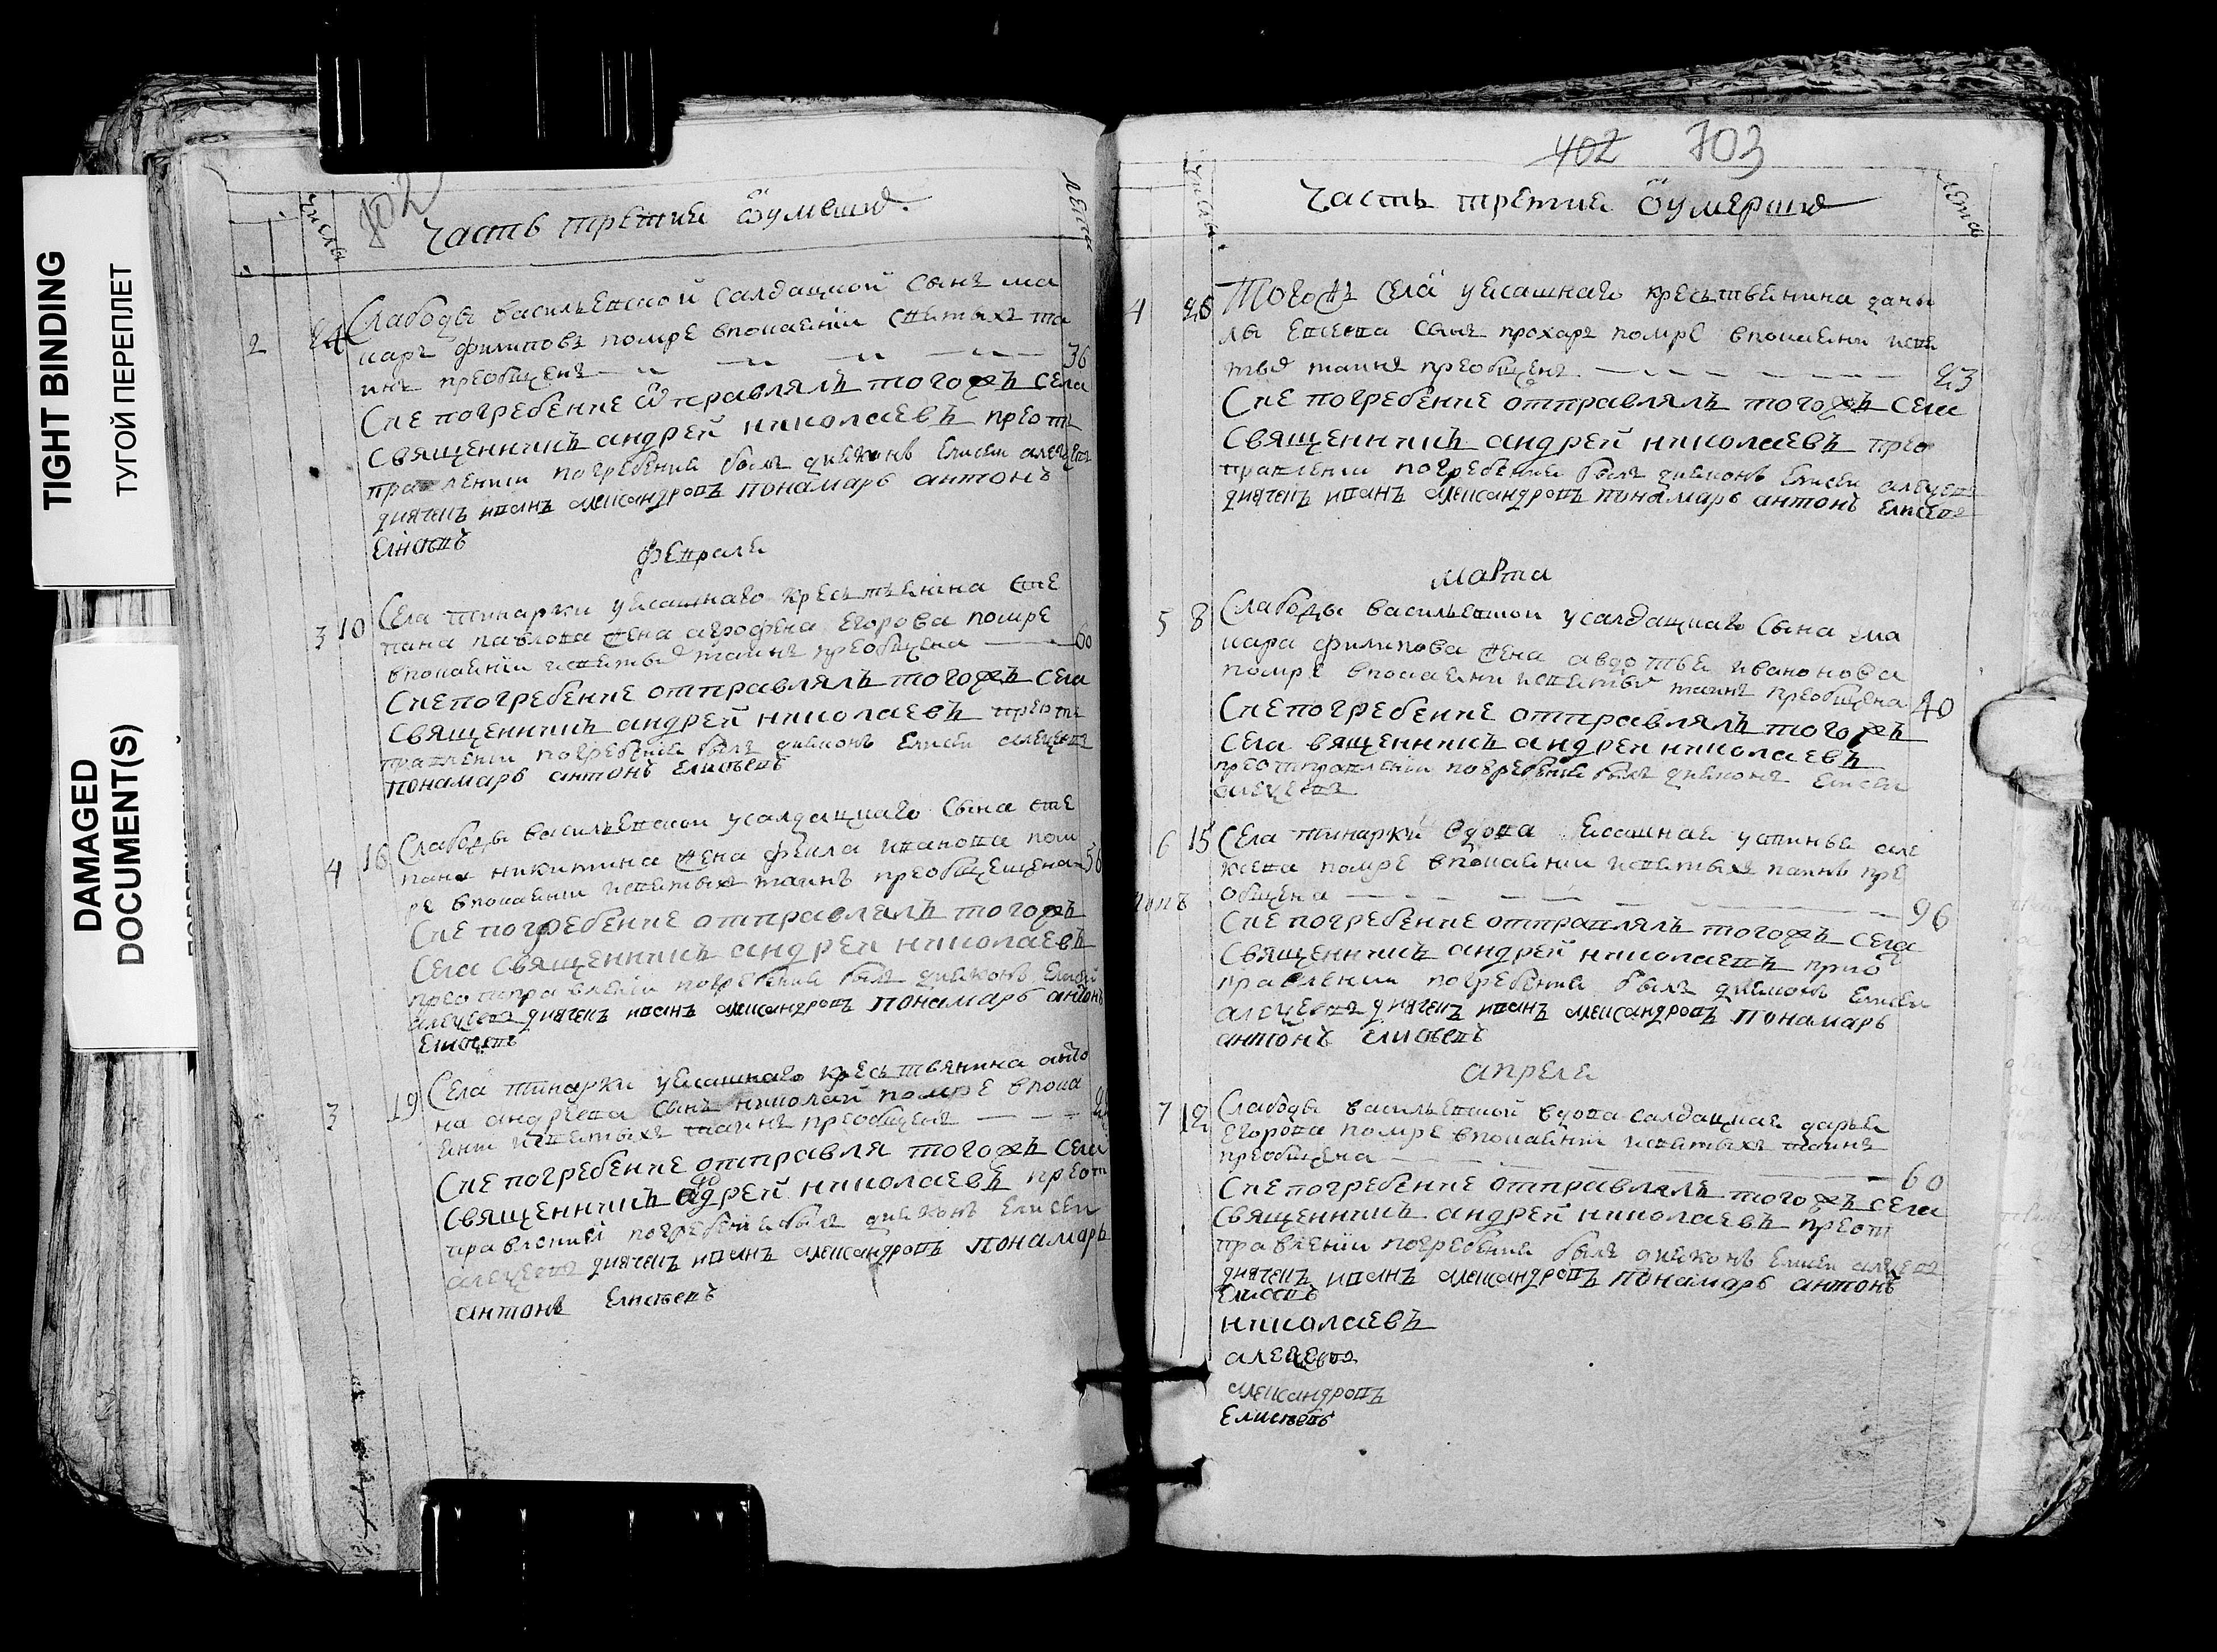 TIGHT BINDING
ТУГОЙ ПЕРЕПЛЕТ
DAMAGED
DOCUMENT(S)
числы
702
часть третия ѿумерши
лета
2 24 Слабоды васильевской салдацкой сынъ ма
каръ филиповъ помре впокаенїи святыхъ та
инъ преобщенъ 36
Сие погребение ѿправлялъ тогожъ села
священникъ андрей николаевъ преотъ
правлении погребения былъ дияконъ Елисеи алеѯевъ
диячекъ иванъ александровъ понамарь антонъ
Елисѣевъ
февраля
3 10 Села тинарки уясашнаго кресьтьянина сте
пана павлова жена агрофена егорова помре
впокаенїи исвятыхъ таинъ преобщена 60
Сие погребение отправлялъ тогожъ села
священникъ андрей николаевъ преотъ
правленїи погребения былъ дияконъ Елисеи алеѯевъ
понамарь антонъ Елисѣевъ
4 16 Слабоды васильевскои усалдацкаго сына сте
пана никитина жена феила иванова пом
ре впокаении исвятыхъ таинъ преобщещена 56
Сие погребение отправлялъ тогожъ
села священникъ андреи николаевъ
преотправленїи погребения былъ дияконъ Елисей
алеѯевъ диячекъ иванъ александровъ понамарь антонъ
Елисѣевъ
3 19 Села тинарки уясашнаго кресьтвянина анто
на андреева сынъ николай помре впока
янии исвятыхъ таинъ преобщенъ
Сие погребение отправля тогожъ села
священникъ адрей николаевъ преот
правлениі погребения былъ дияконъ Елисеи
алеѯевъ диячекъ иванъ александровъ понамарь
антонъ Елисѣевъ
402 703
числы
часть третия ѿумерши
лета
4 28 Тогожъ села уясашнаго кресьтвянина дани
лы сынъ прохаръ помре впокаении исвя
тыхъ таинъ преобщенъ 23
Сие погребение отправлялъ тогожъ села
священникъ андрей николаевъ прео
правлении погребения былъ дияконъ Елисеи алеѯевъ
диячекъ иванъ александровъ понамарь антонъ Елисѣевъ
марта
5 8 Слабоды васильевскои усалдацкаго сына ма
кара филипова жена авдотья иванонова
помре впокаении исвятыхъ таинъ преобщена 40
Сие погребение отправлялъ тогожъ
села вященникъ андреи николаевъ
преотправленїи погребения былъ дияконъ Елисеи
алеѯевъ
6 15 Села тинарки вдова ясашная устинья але
ксева помре впокаении исвятыхъ таинъ пре
общена 96
Сие погребение отправлялъ тогожъ села
священникъ андрей николаевъ приѿ
правлении погребения былъ дияконъ Елисеи
алеѯевъ диячекъ иванъ александровъ понамарь
антонъ Елисѣевъ
апреля
7 12 Слабоды васильевской вдова салдацкая дарья
Егорова помре впокаянїи исвятыхъ таинъ
преобщена 60
Сие погребение отправлялъ тогожъ села
священникъ андрей николаевъ преот
правленїи погребения былъ дияконъ Елисеи алеѯевъ
диячекъ иванъ александровъ понамарь антонъ
Елисевъ
николаевъ
алеѯѣевъ
александровъ
Елисѣевъ